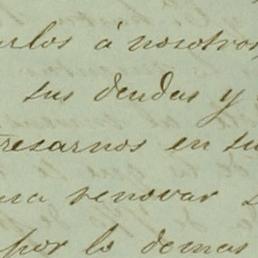 arlos á nosotros,
sus deudas y
resarnos en su
ra renovar s
por lo demas